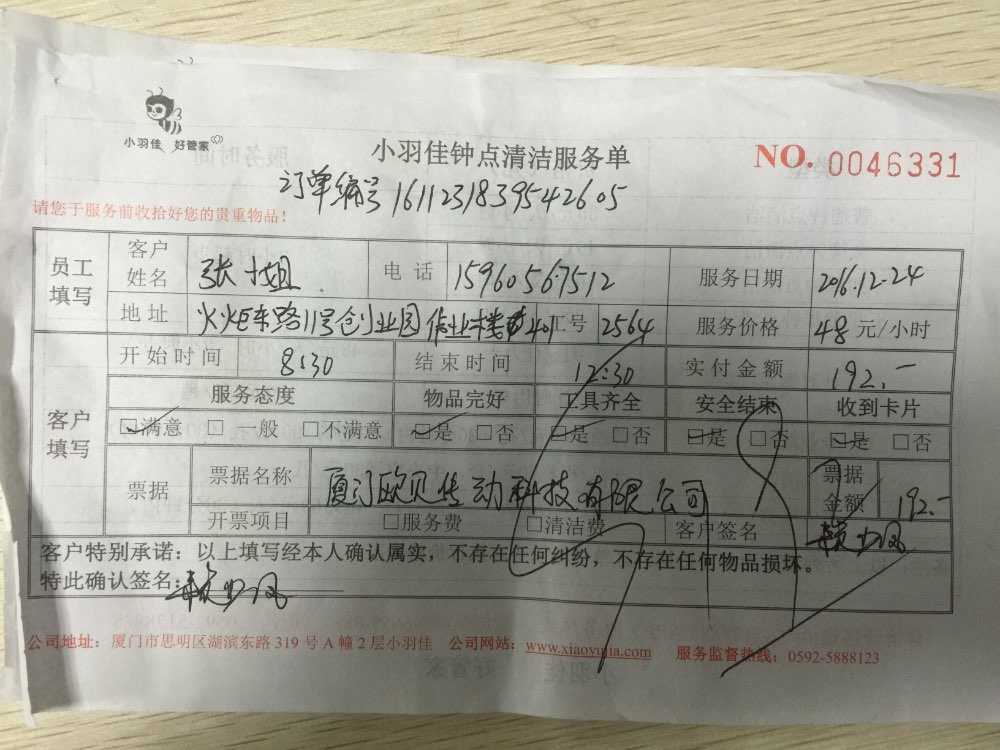 小羽佳 好管家
小羽佳钟点清洁服务单
NO. 0046331
订单编号 1611231839542605
请您于服务前收拾好您的贵重物品！
员工填写 客户姓名 张小姐 电话 15960567512 服务日期 2016.12.24
地址 火炬东路11号创业园 401 工号 2564 服务价格 48 元/小时
客户填写 开始时间 8:30 结束时间 12:30 实付金额 192.-
服务态度 物品完好 工具齐全 安全结束 收到卡片
☑满意 □ 一般 □不满意 ☑是 □否 ☑是 □否 ☑是 □否 ☑是 □否
票据 票据名称 厦门欧贝传动科技有限公司 票据金额 192.-
开票项目 □服务费 □清洁费 客户签名
客户特别承诺：以上填写经本人确认属实，不存在任何纠纷，不存在任何物品损坏。
特此确认签名：
公司地址：厦门市思明区湖滨东路 319 号 A 幢 2 层小羽佳 公司网站：www.xiaoyujia.com 服务监督热线：0592-5888123